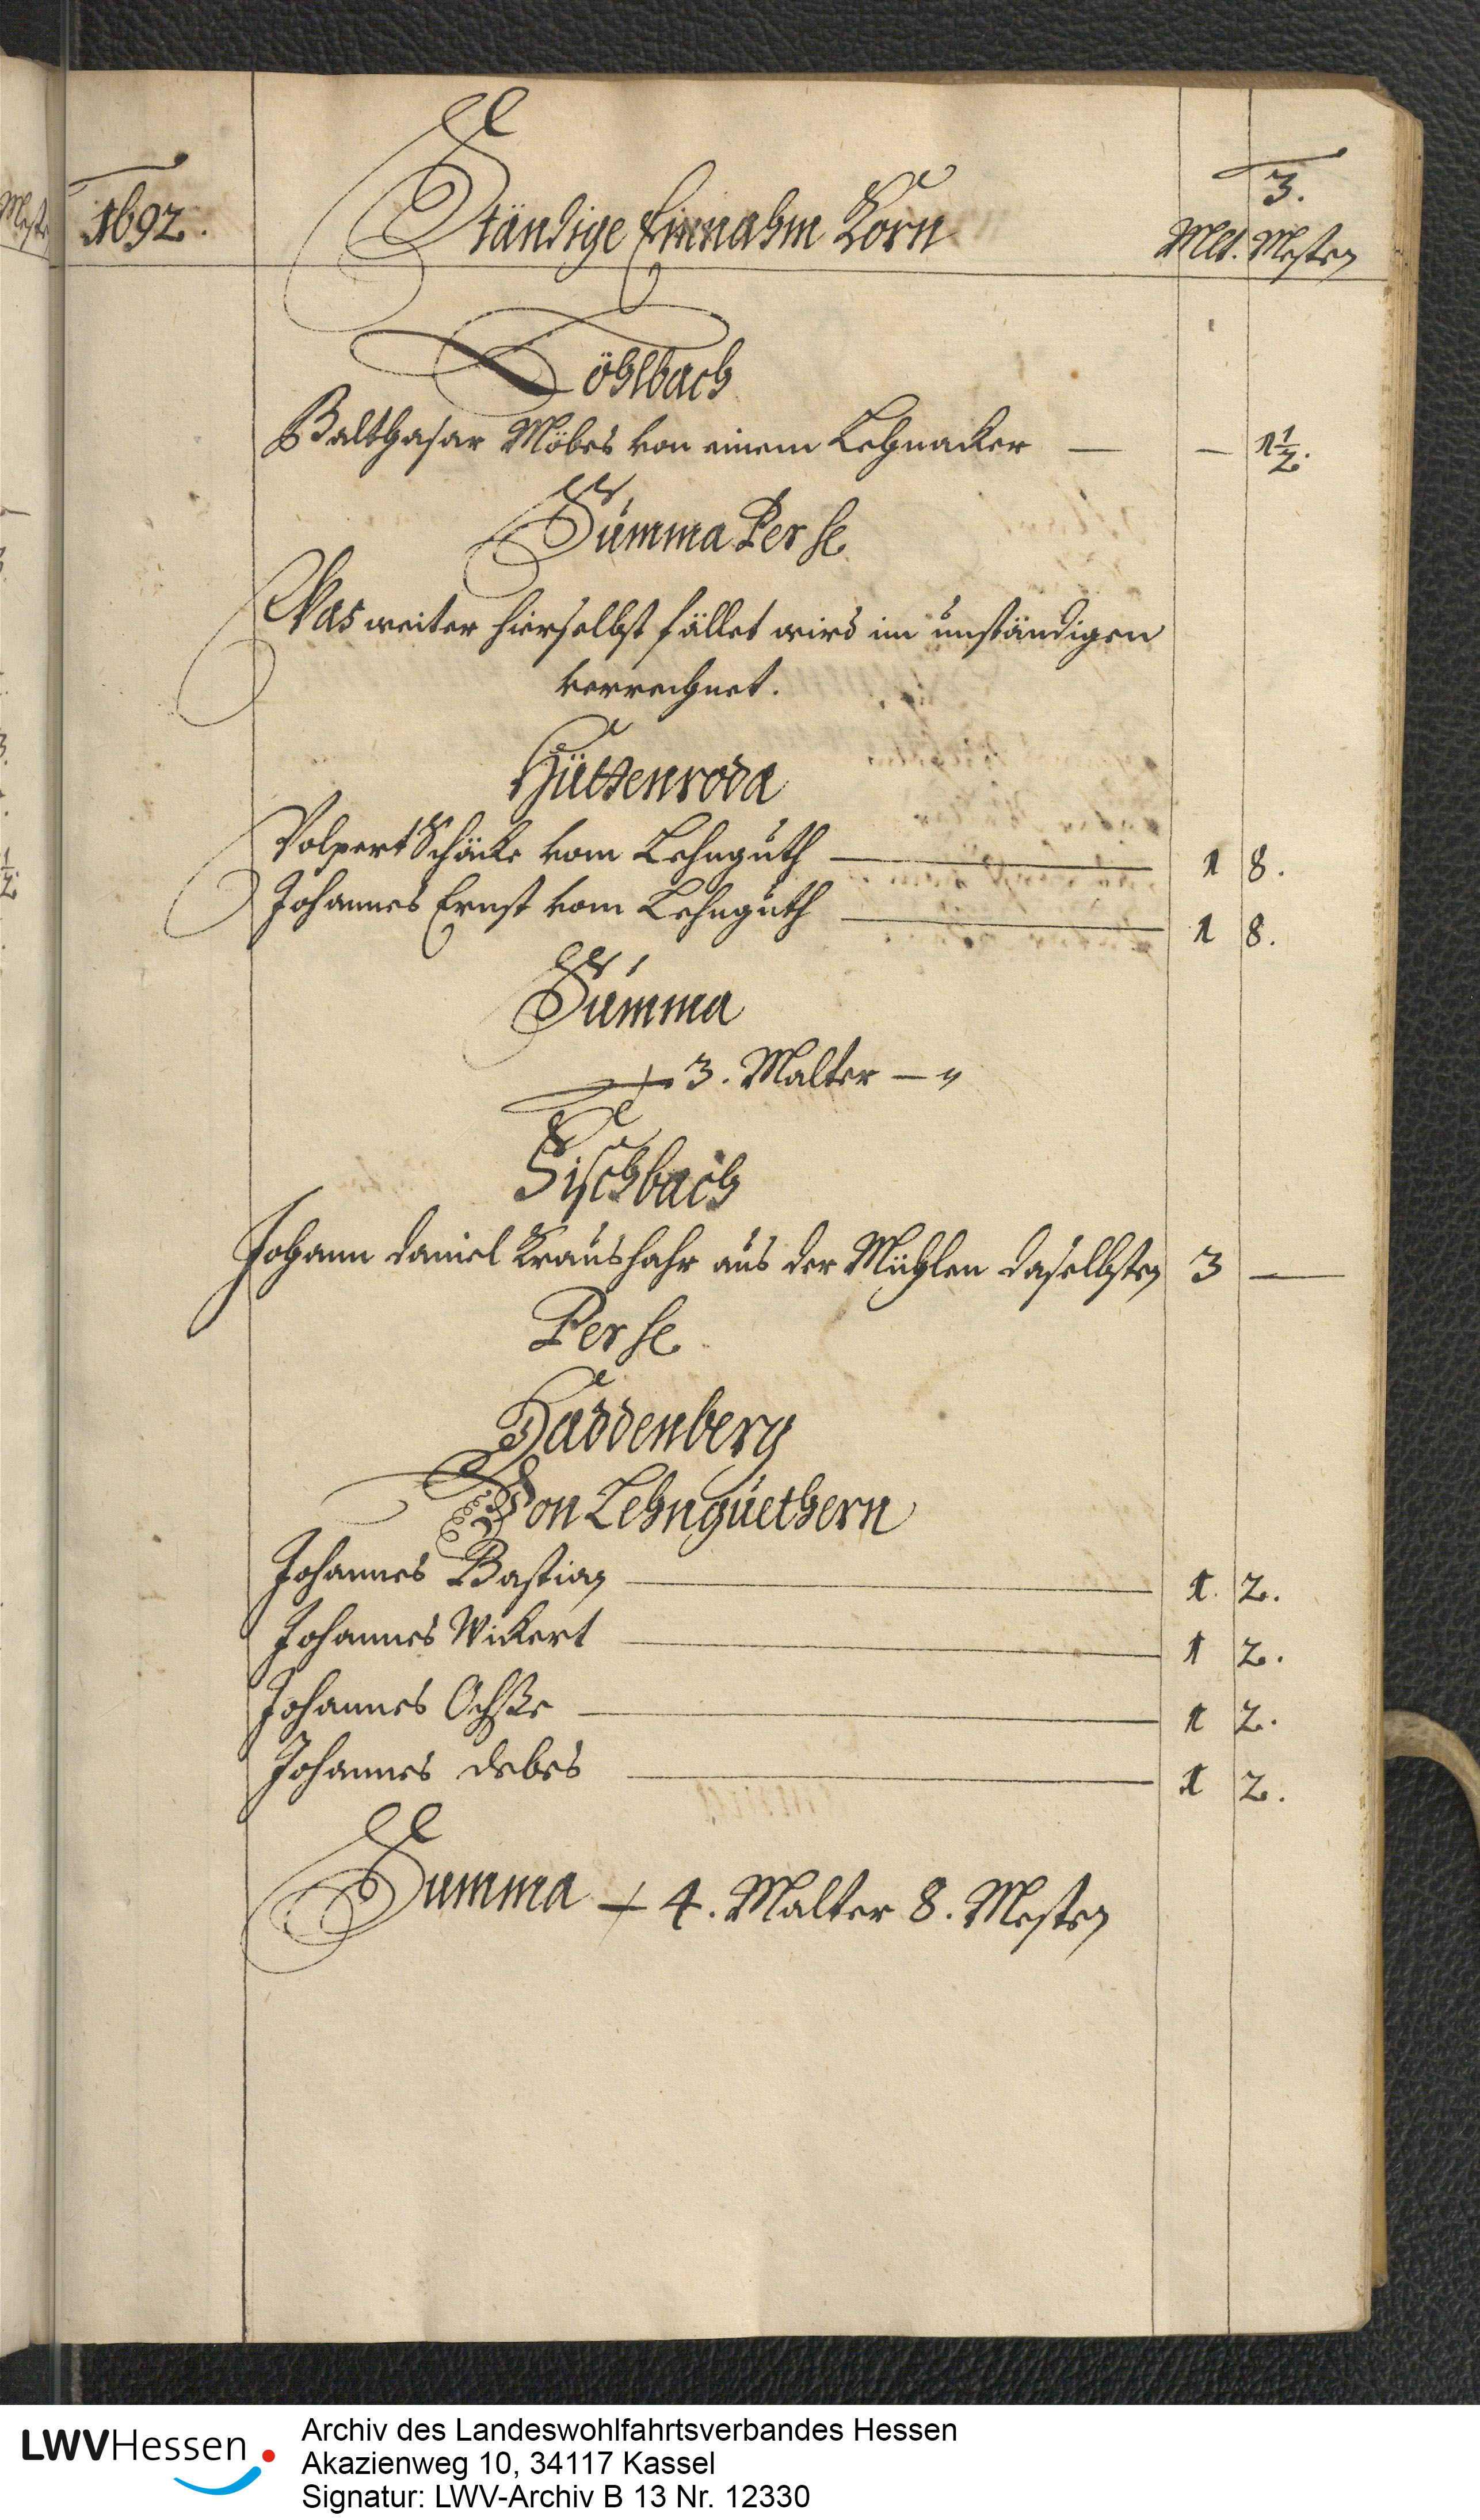 1692.
Ständige Einnahm Korn
3.
Mlt. Mesten
Löhlbach
Balthasar Möbes von einem Lehnacker — — 1 1/2.
Summa Per se
Was weiter hierselbst fället wird im unständigen
verrechnet.
Hüttenroda
Volpert Schäcke vom Lehnguth — 1 8.
Johannes Ernst vom Lehnguth — 1 8.
Summa
3. Malter — "
Fischbach
Johann Daniel Kraushahr aus der Mühlen daselbsten 3 —
Per se
Haddenberg
Von Lehngüethern
Johannes Bastian — 1. 2.
Johannes Wickert — 1 2.
Johannes Ochße — 1 2.
Johannes Debes — 1 2.
Summa 4. Malter 8. Mesten
LWVHessen
Archiv des Landeswohlfahrtsverbandes Hessen
Akazienweg 10, 34117 Kassel
Signatur: LWV-Archiv B 13 Nr. 12330